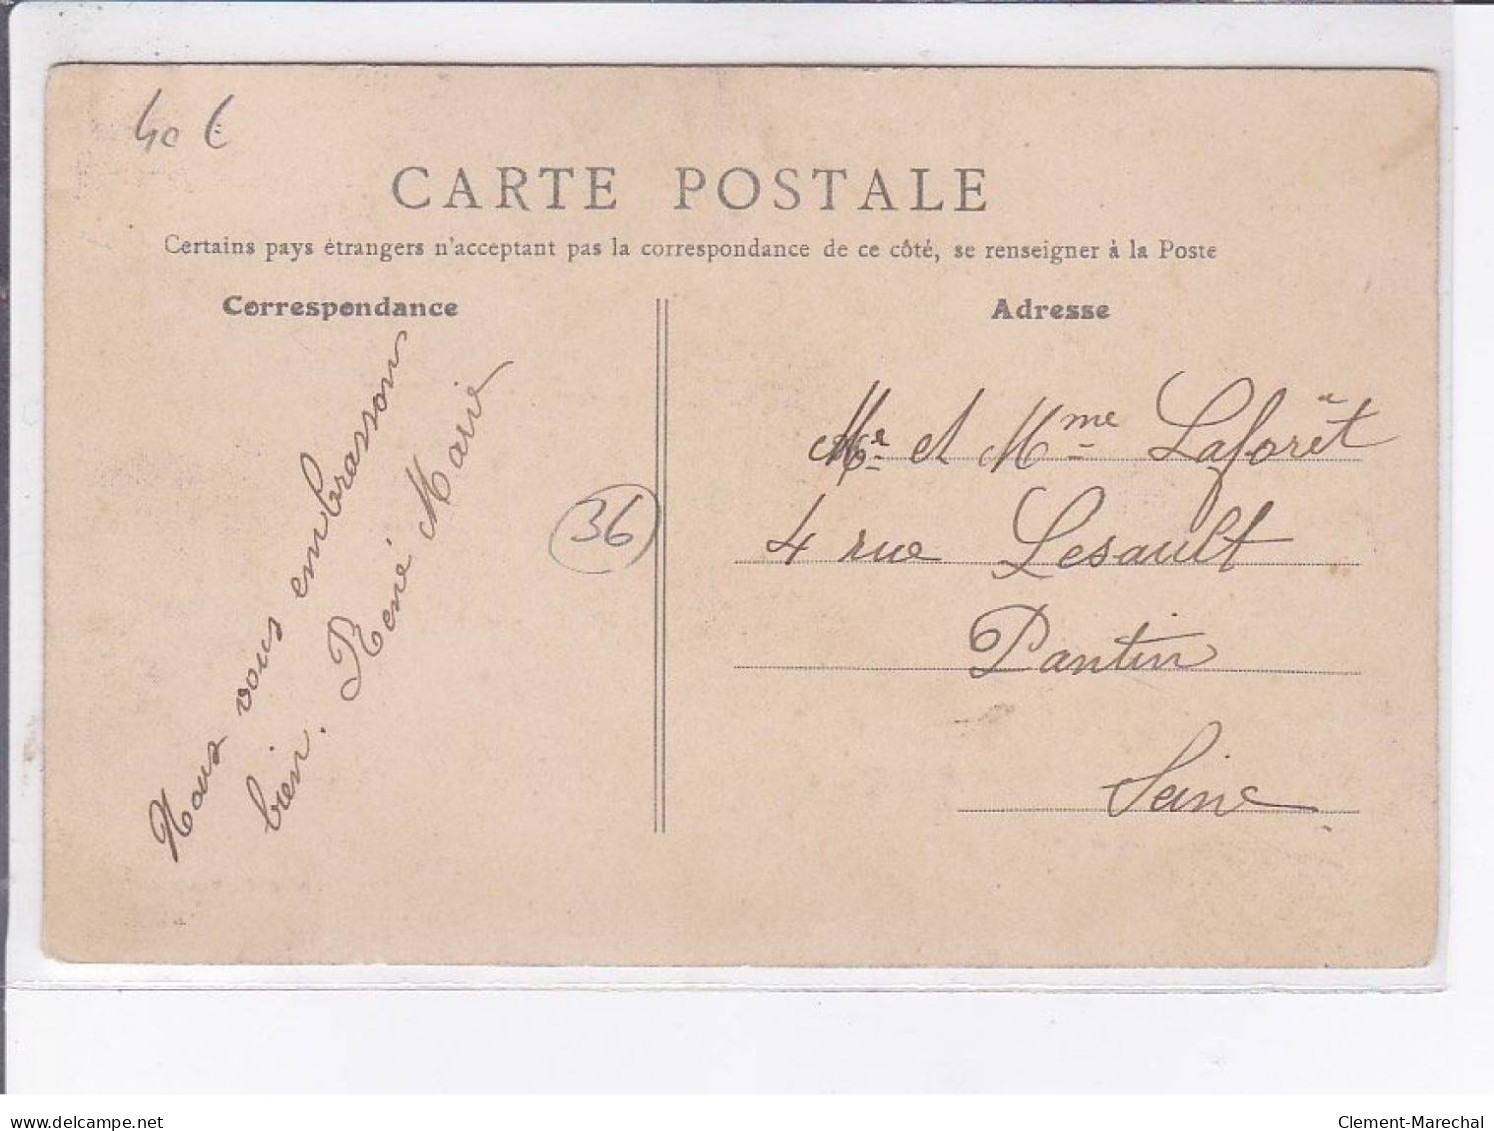 40 €
CARTE POSTALE
Certains pays étrangers n'acceptent pas la correspondance de ce côté, se renseigner à la Poste
Correspondance
Nous vous embrassons
bien. René Marie
36
Adresse
Mr et Mme Laforêt
4 rue Lesault
Pantin
Seine
delcampe.net
Clement-Marechal